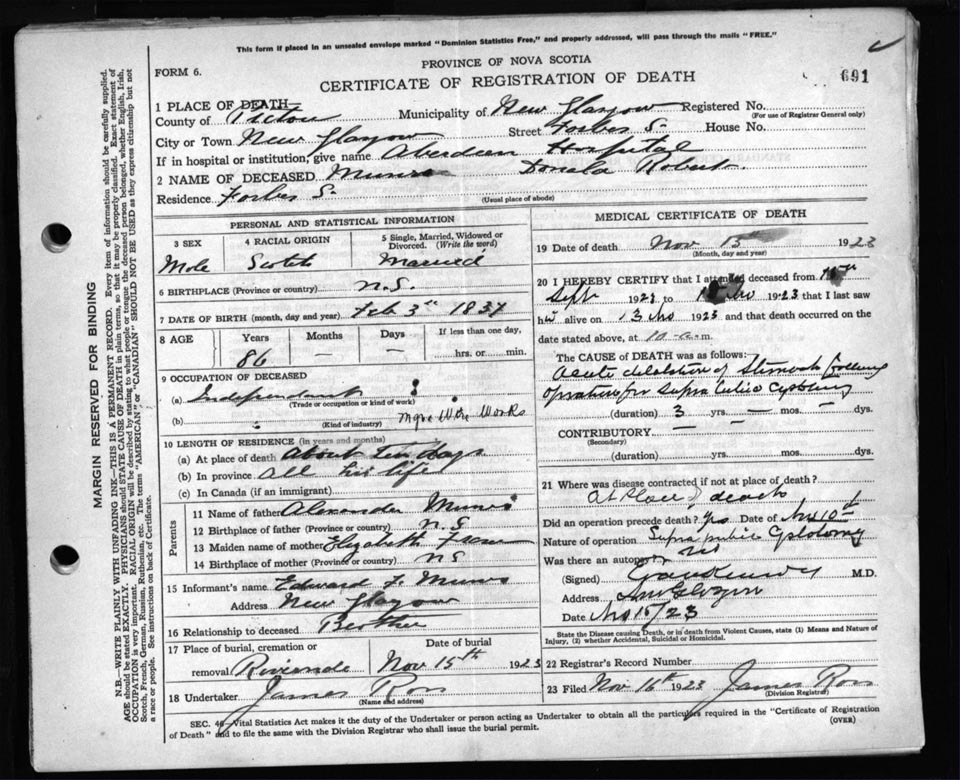 This form if placed in an unsealed envelope marked "Dominion Statistics Free," and properly addressed, will pass through the mails "FREE."
PROVINCE OF NOVA SCOTIA
FORM 6.
CERTIFICATE OF REGISTRATION OF DEATH
691
1 PLACE OF DEATH
County of Pictou Municipality of New Glasgow Registered No.
(For use of Registrar General only)
City or Town New Glasgow Street Forbes S. House No.
If in hospital or institution, give name Aberdeen Hospital
2 NAME OF DECEASED Munro Donald Robert
Residence Forbes S.
(Usual place of abode)
PERSONAL AND STATISTICAL INFORMATION
3 SEX 4 RACIAL ORIGIN 5 Single, Married, Widowed or Divorced. (Write the word)
Male Scotch Married
6 BIRTHPLACE (Province or country) N.S.
7 DATE OF BIRTH (month, day and year) Feb 3rd 1837
8 AGE Years Months Days If less than one day,
86 — — hrs. or min.
9 OCCUPATION OF DECEASED
(a) Independent
(Trade or occupation or kind of work)
(b) Works
(Kind of industry)
10 LENGTH OF RESIDENCE (in years and months)
(a) At place of death About Ten days
(b) In province All his life
(c) In Canada (if an immigrant)
Parents
11 Name of father Alexander Munro
12 Birthplace of father (Province or country) N.S
13 Maiden name of mother Elizabeth Fraser
14 Birthplace of mother (Province or country) N S
15 Informant's name Edward F. Munro
Address New Glasgow
16 Relationship to deceased Brother
17 Place of burial, cremation or Date of burial
removal Riverside Nov 15th 1923
18 Undertaker James Ross
(Name and address)
MEDICAL CERTIFICATE OF DEATH
19 Date of death Nov 13 1923
(Month, day and year)
20 I HEREBY CERTIFY that I attended deceased from
Sept 1923 to 1923 that I last saw
him alive on 13 Nov 1923 and that death occurred on the
date stated above, at 10 a.m.
The CAUSE of DEATH was as follows:
Acute dilatation of Stomach following
operation for Supra Pubic Cystotomy
(duration) 3 yrs. — mos. — dys.
CONTRIBUTORY — —
(Secondary)
(duration) yrs. mos. dys.
21 Where was disease contracted if not at place of death?
At Place of death
Did an operation precede death? Yes Date of Nov 10th
Nature of operation Supra pubic Cystotomy
Was there an autopsy? No
(Signed) M.D.
Address New Glasgow
Date Nov 15/23
State the Disease causing Death, or in death from Violent Causes, state (1) Means and Nature of Injury, (2) whether Accidental, Suicidal or Homicidal.
22 Registrar's Record Number
23 Filed Nov 16th 1923 James Ross
(Division Registrar)
SEC. 46—Vital Statistics Act makes it the duty of the Undertaker or person acting as Undertaker to obtain all the particulars required in the "Certificate of Registration
of Death" and to file the same with the Division Registrar who shall issue the burial permit.
(OVER)
MARGIN RESERVED FOR BINDING
N.B.—WRITE PLAINLY WITH UNFADING INK—THIS IS A PERMANENT RECORD. Every item of information should be carefully supplied.
AGE should be stated EXACTLY. PHYSICIANS should STATE CAUSE OF DEATH in plain terms, so that it may be properly classified. Exact statement of
OCCUPATION is very important. RACIAL ORIGIN will be described by stating to what people or tongue the deceased person belonged, whether English, Irish,
Scotch, French, German, Russian, Ruthenian, etc. The terms "AMERICAN" or "CANADIAN" SHOULD NOT BE USED as they express citizenship but not
a race or people. See instructions on back of Certificate.